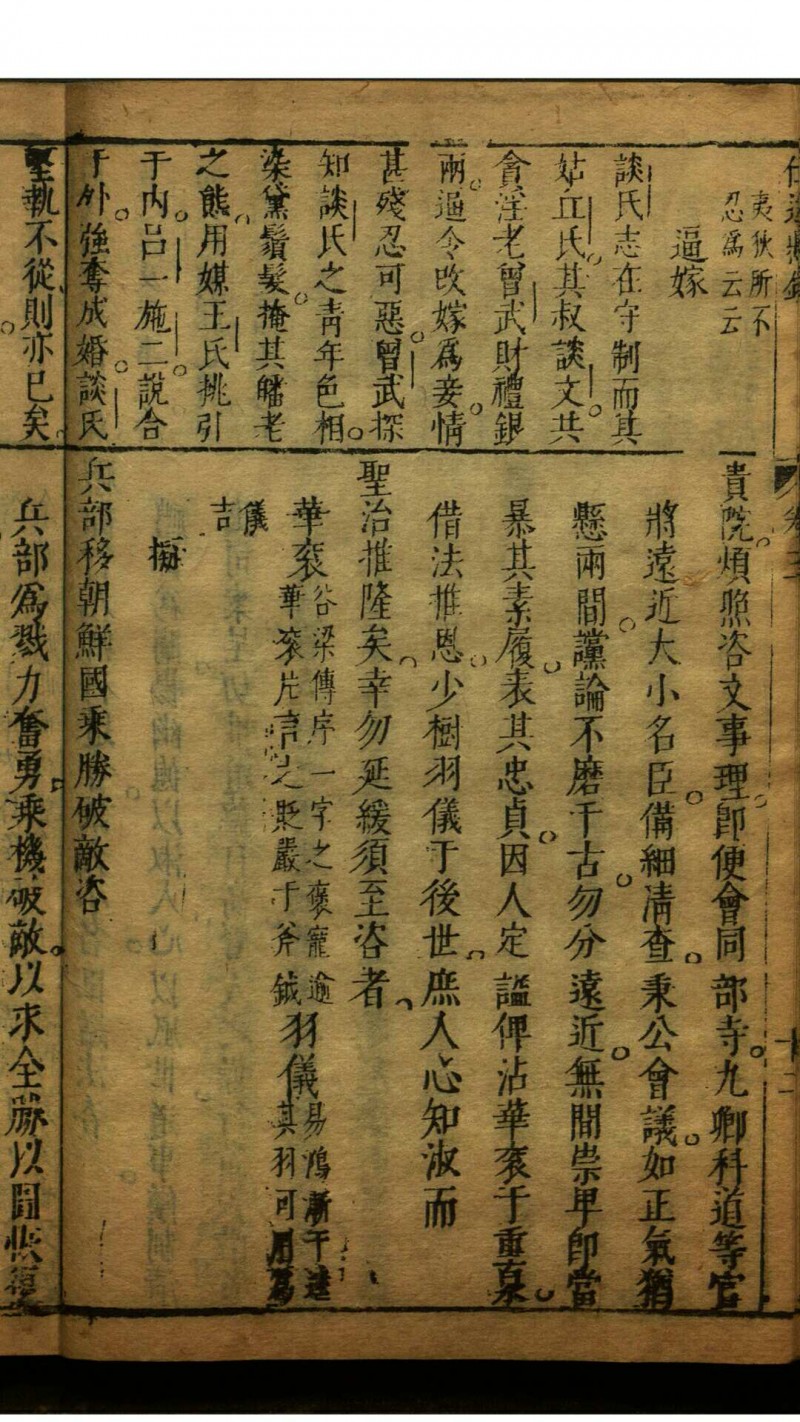 夷狄所不
忍為云云
逼嫁
談氏志在守制而其
姑丘氏其叔談文共
貪淫老曾武財禮銀
兩逼令改嫁為妾情
甚殘忍可惡曾武探
知談氏之青年色相
染黛鬚髮掩其皤老
之態用媒王氏挑引
于内呂一施二說合
于外強奪成婚談氏
堅執不從則亦已矣
貴院煩照咨文事理即便會同部寺九卿科道等官
將遠近大小名臣備細清查秉公會議如正氣猶
懸兩間讜論不磨千古勿分遠近無間崇卑即當
暴其素履表其忠貞因人定諡俾沾華袞于重泉
借法推恩少樹羽儀于後世庶人心知淑而
聖治推隆矣幸勿延緩須至咨者
華袞
谷梁傳序一字之褒寵逾
華袞片言之貶嚴于斧鉞
羽儀
易鴻漸于逵
其羽可用為
儀
吉
擬
兵部移朝鮮國乘勝破敵咨
兵部為戮力奮勇乘機破敵以求全勝以圖恢復